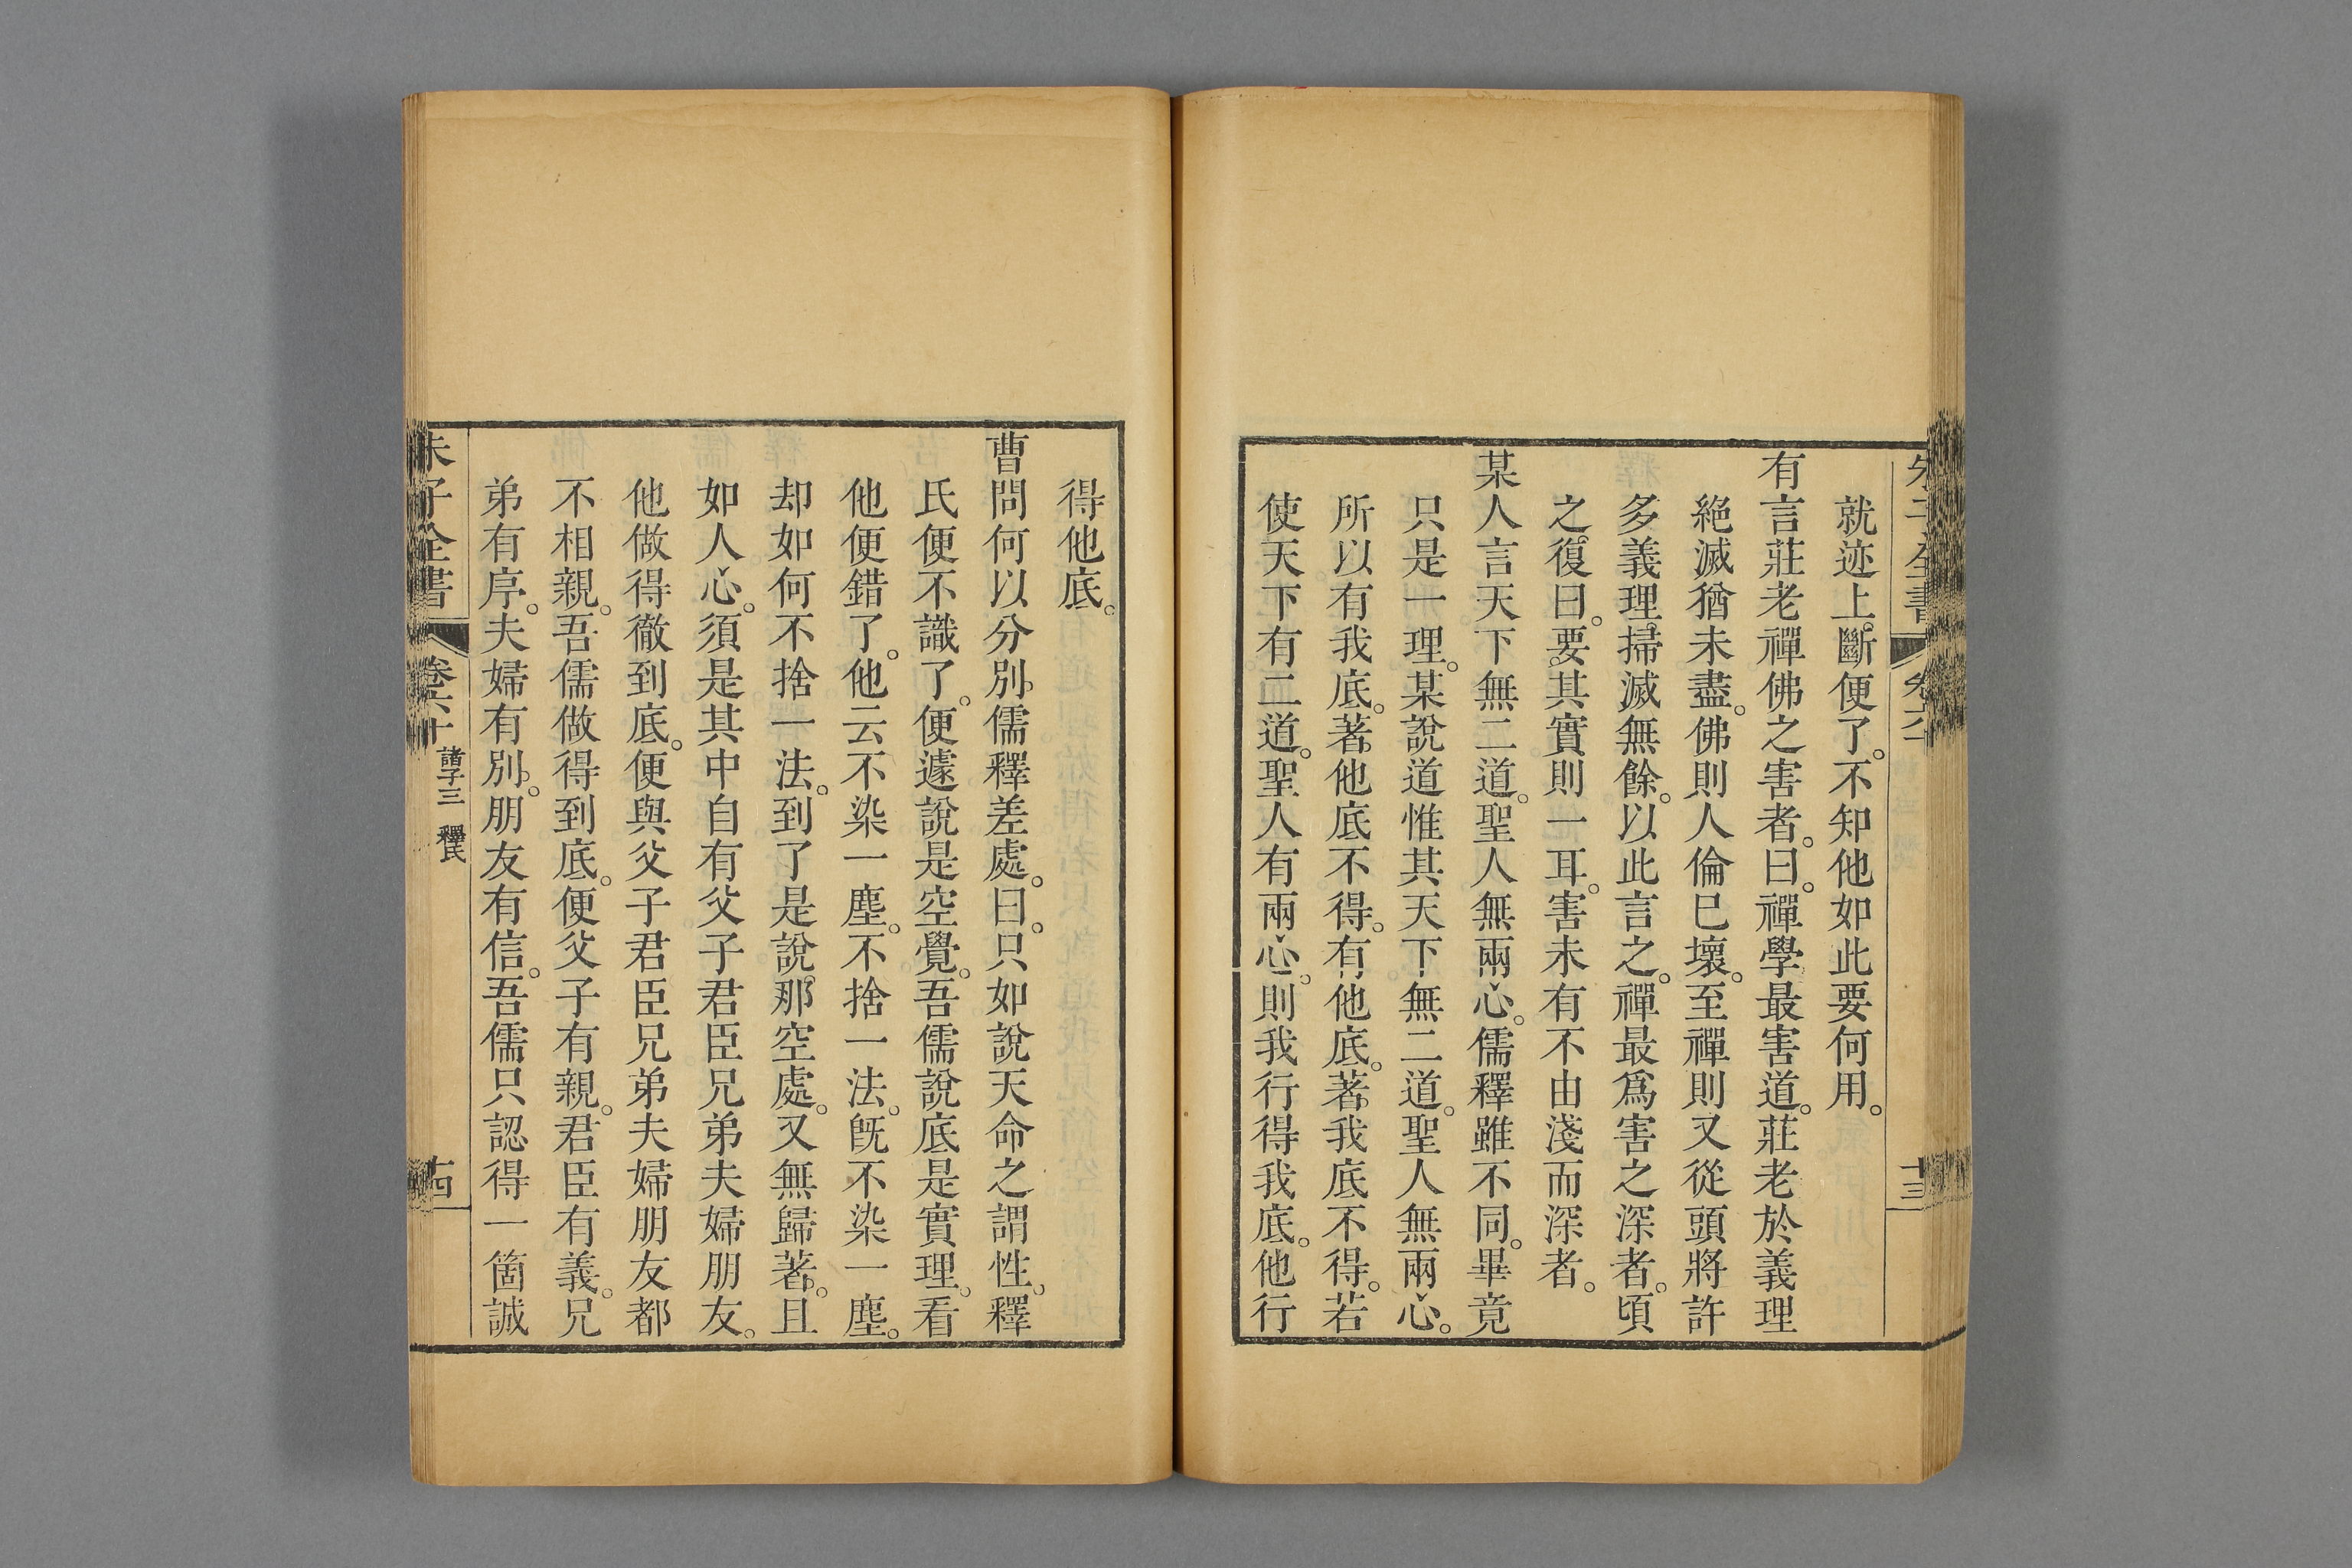 就迹上斷便了。不知他如此要何用。
有言莊老禪佛之害者。曰。禪學最害道。莊老於義理
絶滅猶未盡。佛則人倫已壞。至禪則又從頭將許
多義理。掃滅無餘。以此言之。禪最爲害之深者。頃
之。復曰。要其實則一耳。害未有不由淺而深者。
某人言天下無二道。聖人無兩心。儒釋雖不同。畢竟
只是一理。某說道惟其天下無二道。聖人無兩心。
所以有我底。著他底不得。有他底。著我底不得。若
使天下有二道。聖人有兩心。則我行得我底。他行
得他底。
曹問何以分別。儒釋差處。曰。只如說天命之謂性。釋
氏便不識了。便遽說是空覺。吾儒說底是實理。看
他便錯了。他云不染一塵。不捨一法。旣不染一塵。
却如何不捨一法。到了是說那空處。又無歸著。且
如人心。須是其中自有父子君臣兄弟夫婦朋友。
他做得徹到底。便與父子君臣兄弟夫婦朋友都
不相親。吾儒做得到底。便父子有親。君臣有義。兄
弟有序。夫婦有別。朋友有信。吾儒只認得一箇誠
朱子全書 卷六十 諸子三 釋氏 十四